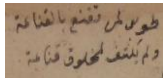 طوبى لمن تقنع بالقناعة
ولم يلتفت لمخلوق قناعة